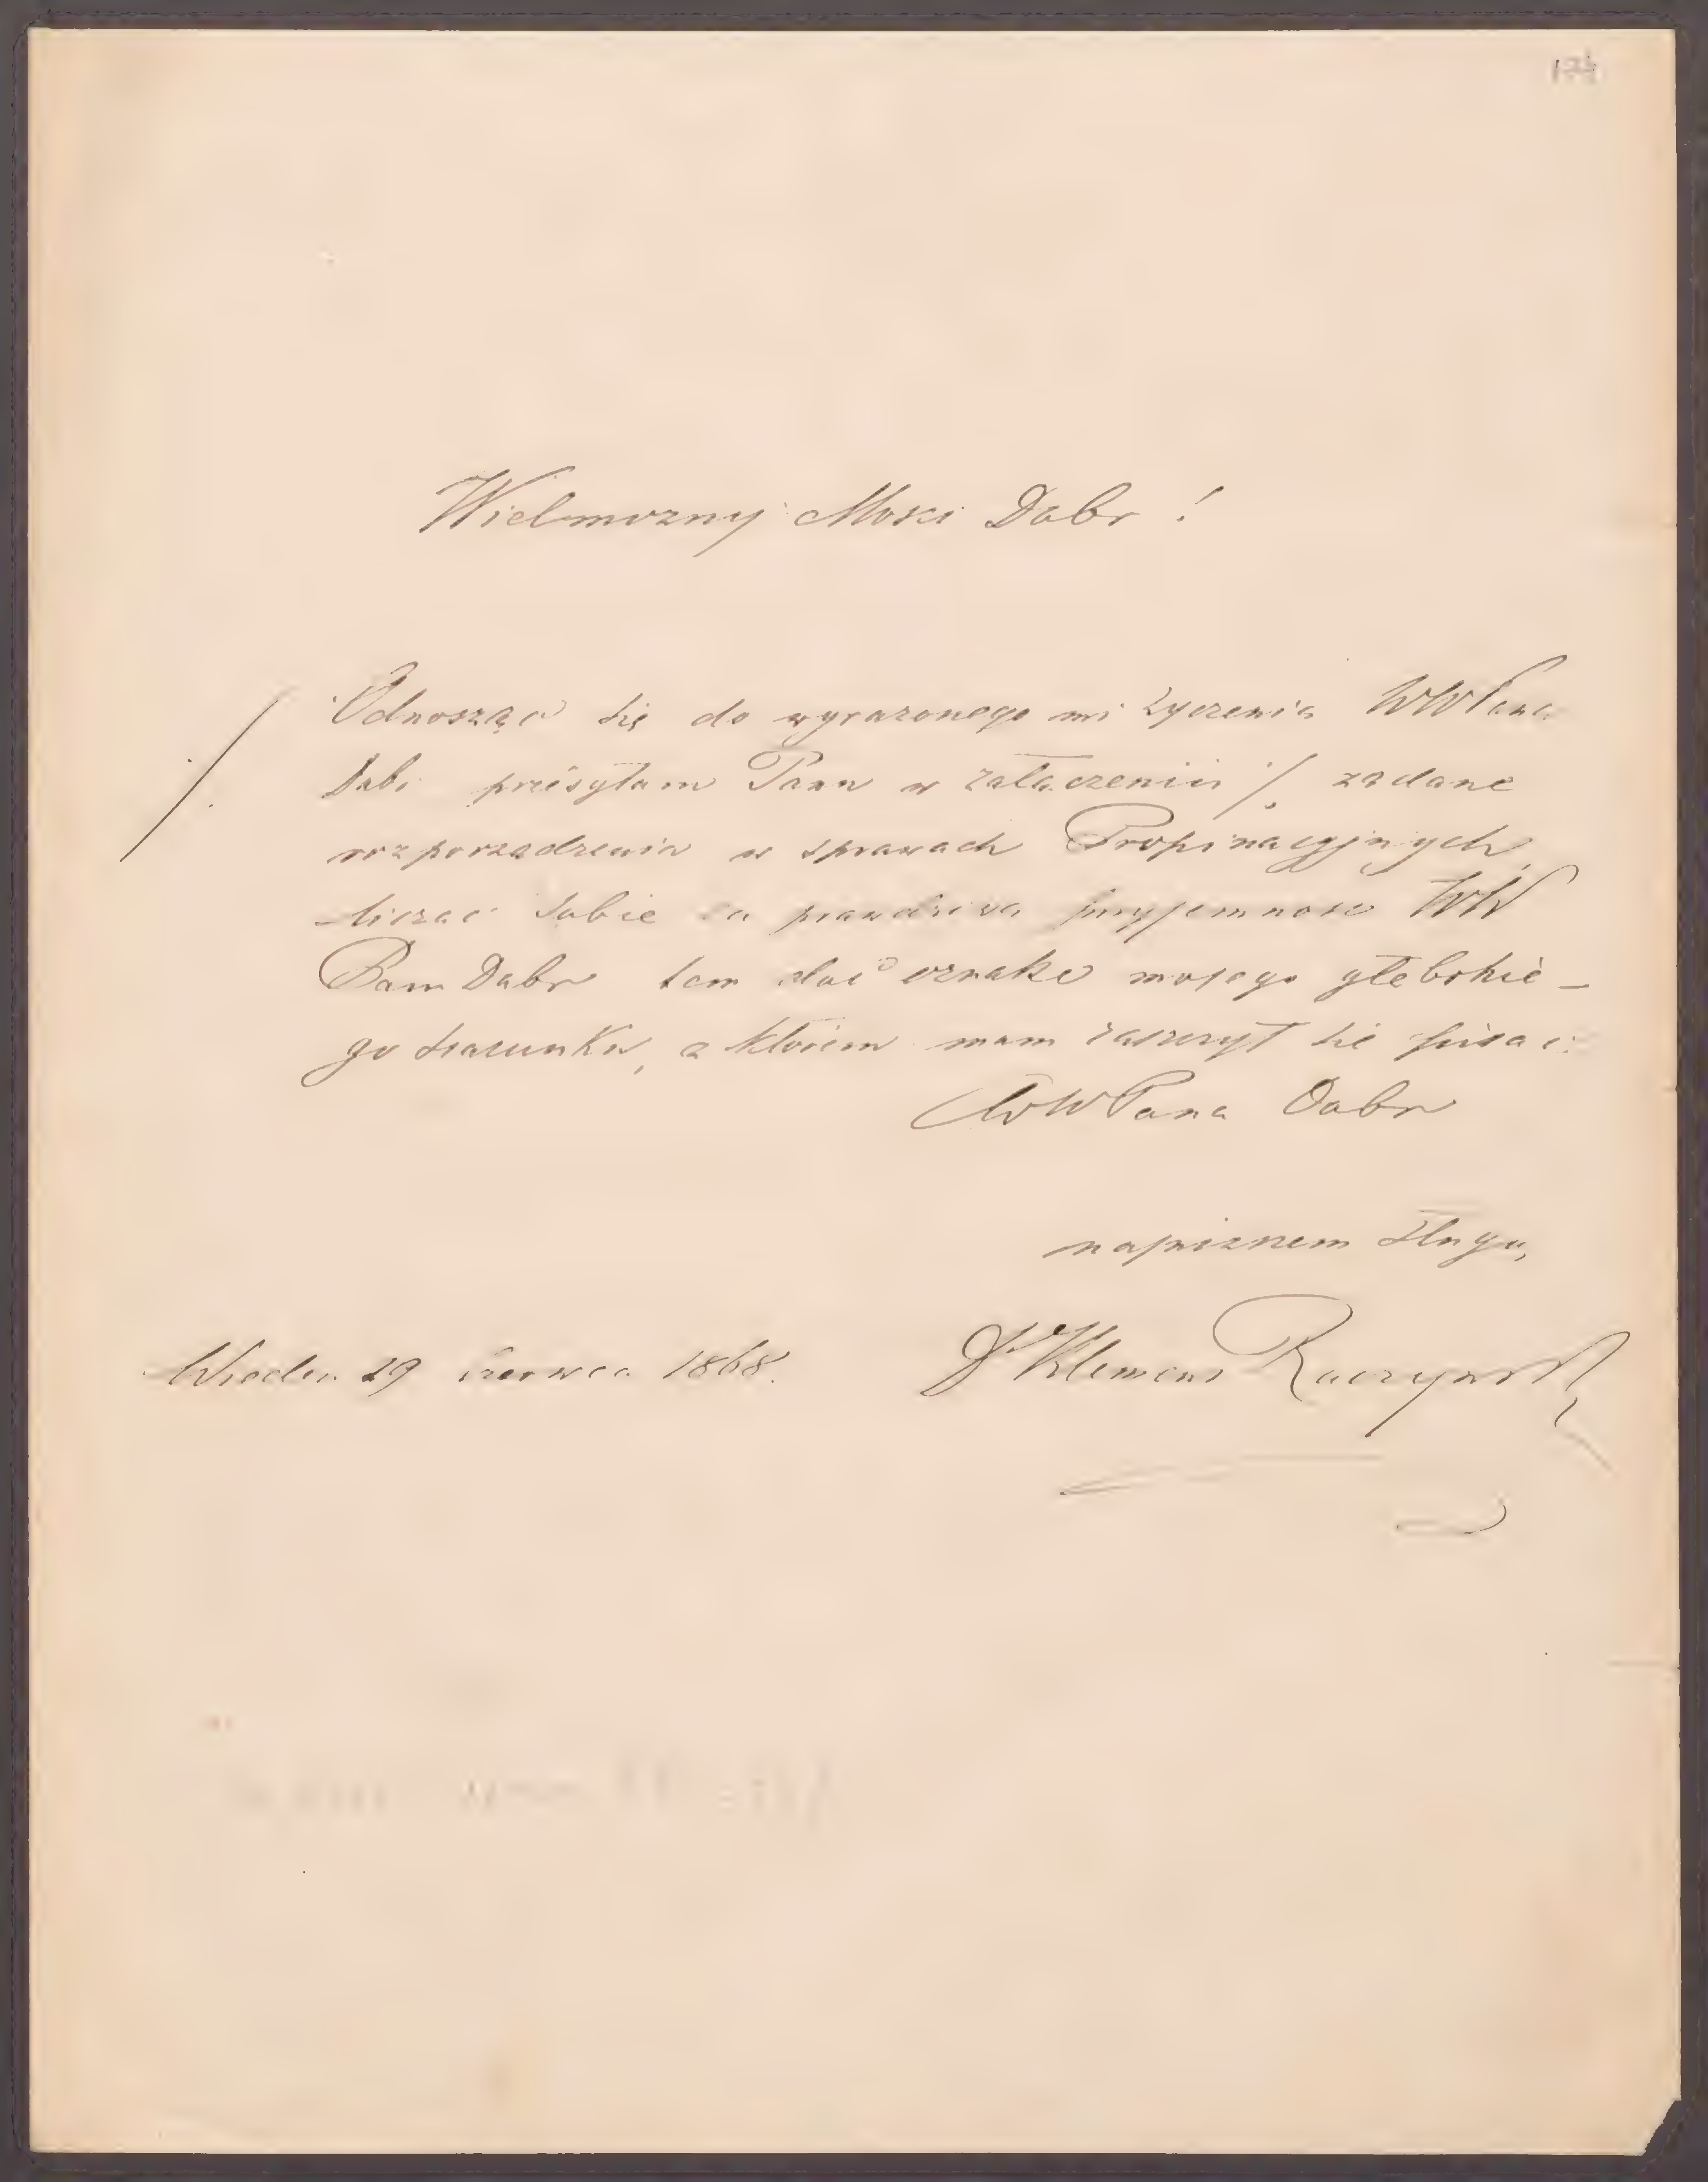 174
Wielmozny Mosci Dobr !
Odnosząc się do wyrazonego mi życzenia WWPana
Dobr przésyłam Panu w załaczeniu ·/. ządane
rozporzadzenia w sprawach Propinacyjnych,
liczac sobie za prawdziwa przyjemnosc WW
Panu Dobr tem dać oznake mojego głebokie –
go szacunku, z ktorem mam zaszczyt sie pisac:
WWPana Dobr
najnizszem sługą,
Dr Klemens Raczynski
Wieden 29 czerwca 1868.